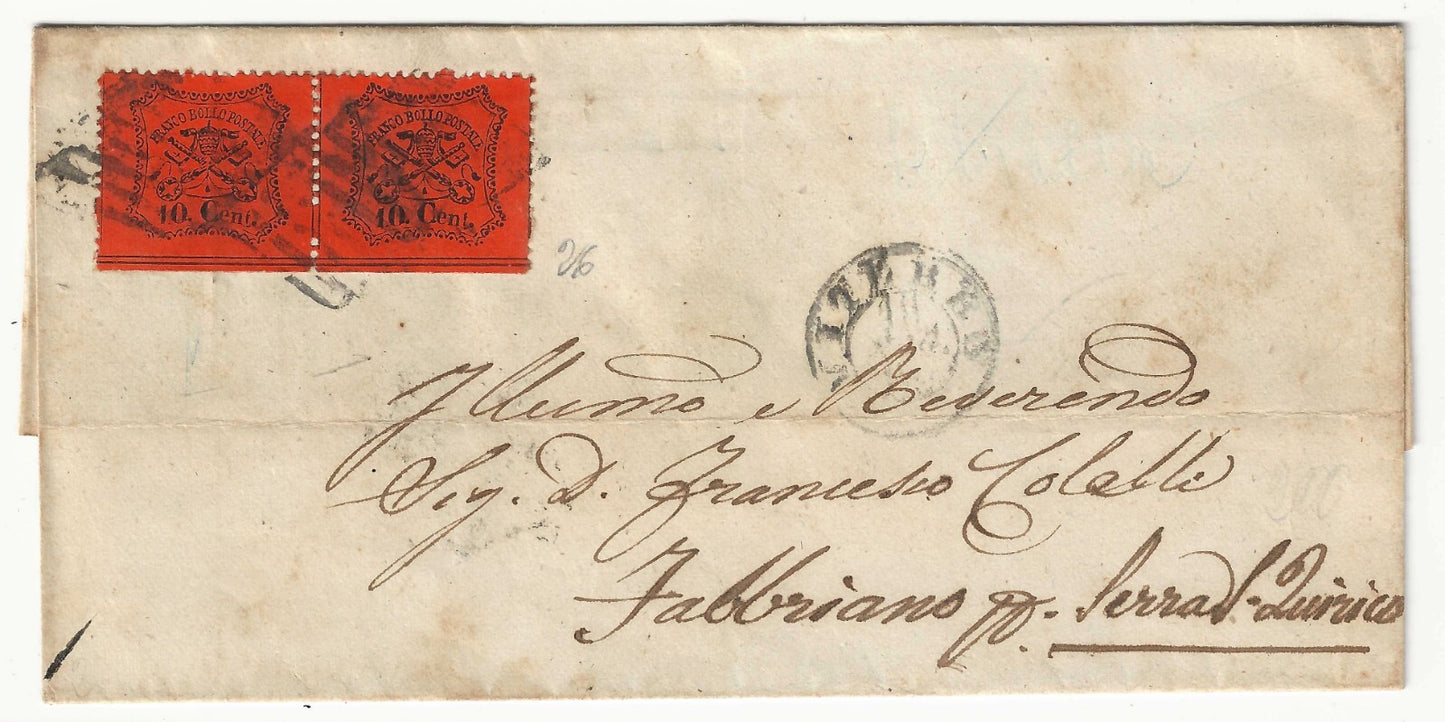 FRANCO BOLLO POSTALE
10. Cent.
FRANCO BOLLO POSTALE
10. Cent.
26
VITERBO
Illumo e Reverendo
Sig. D. Francesco Colelli
Fabbriano pp. Serra S. Quirico